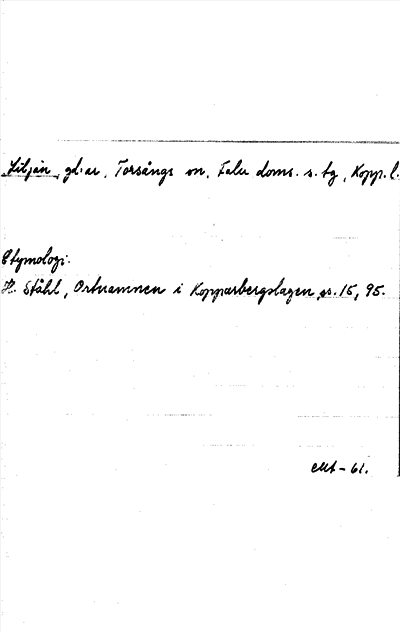 Liljan, gd:ar, Torsångs sn, Falu doms. s. tg, Kopp. l.
Etymologi:
H. Ståhl, Ortnamnen i Kopparbergslagen, s. 15, 95.
-61.